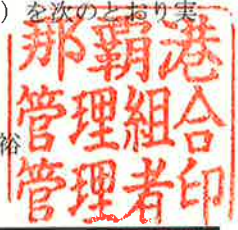 ）を次のとおり実
裕
那覇港
管理組合
管理者印